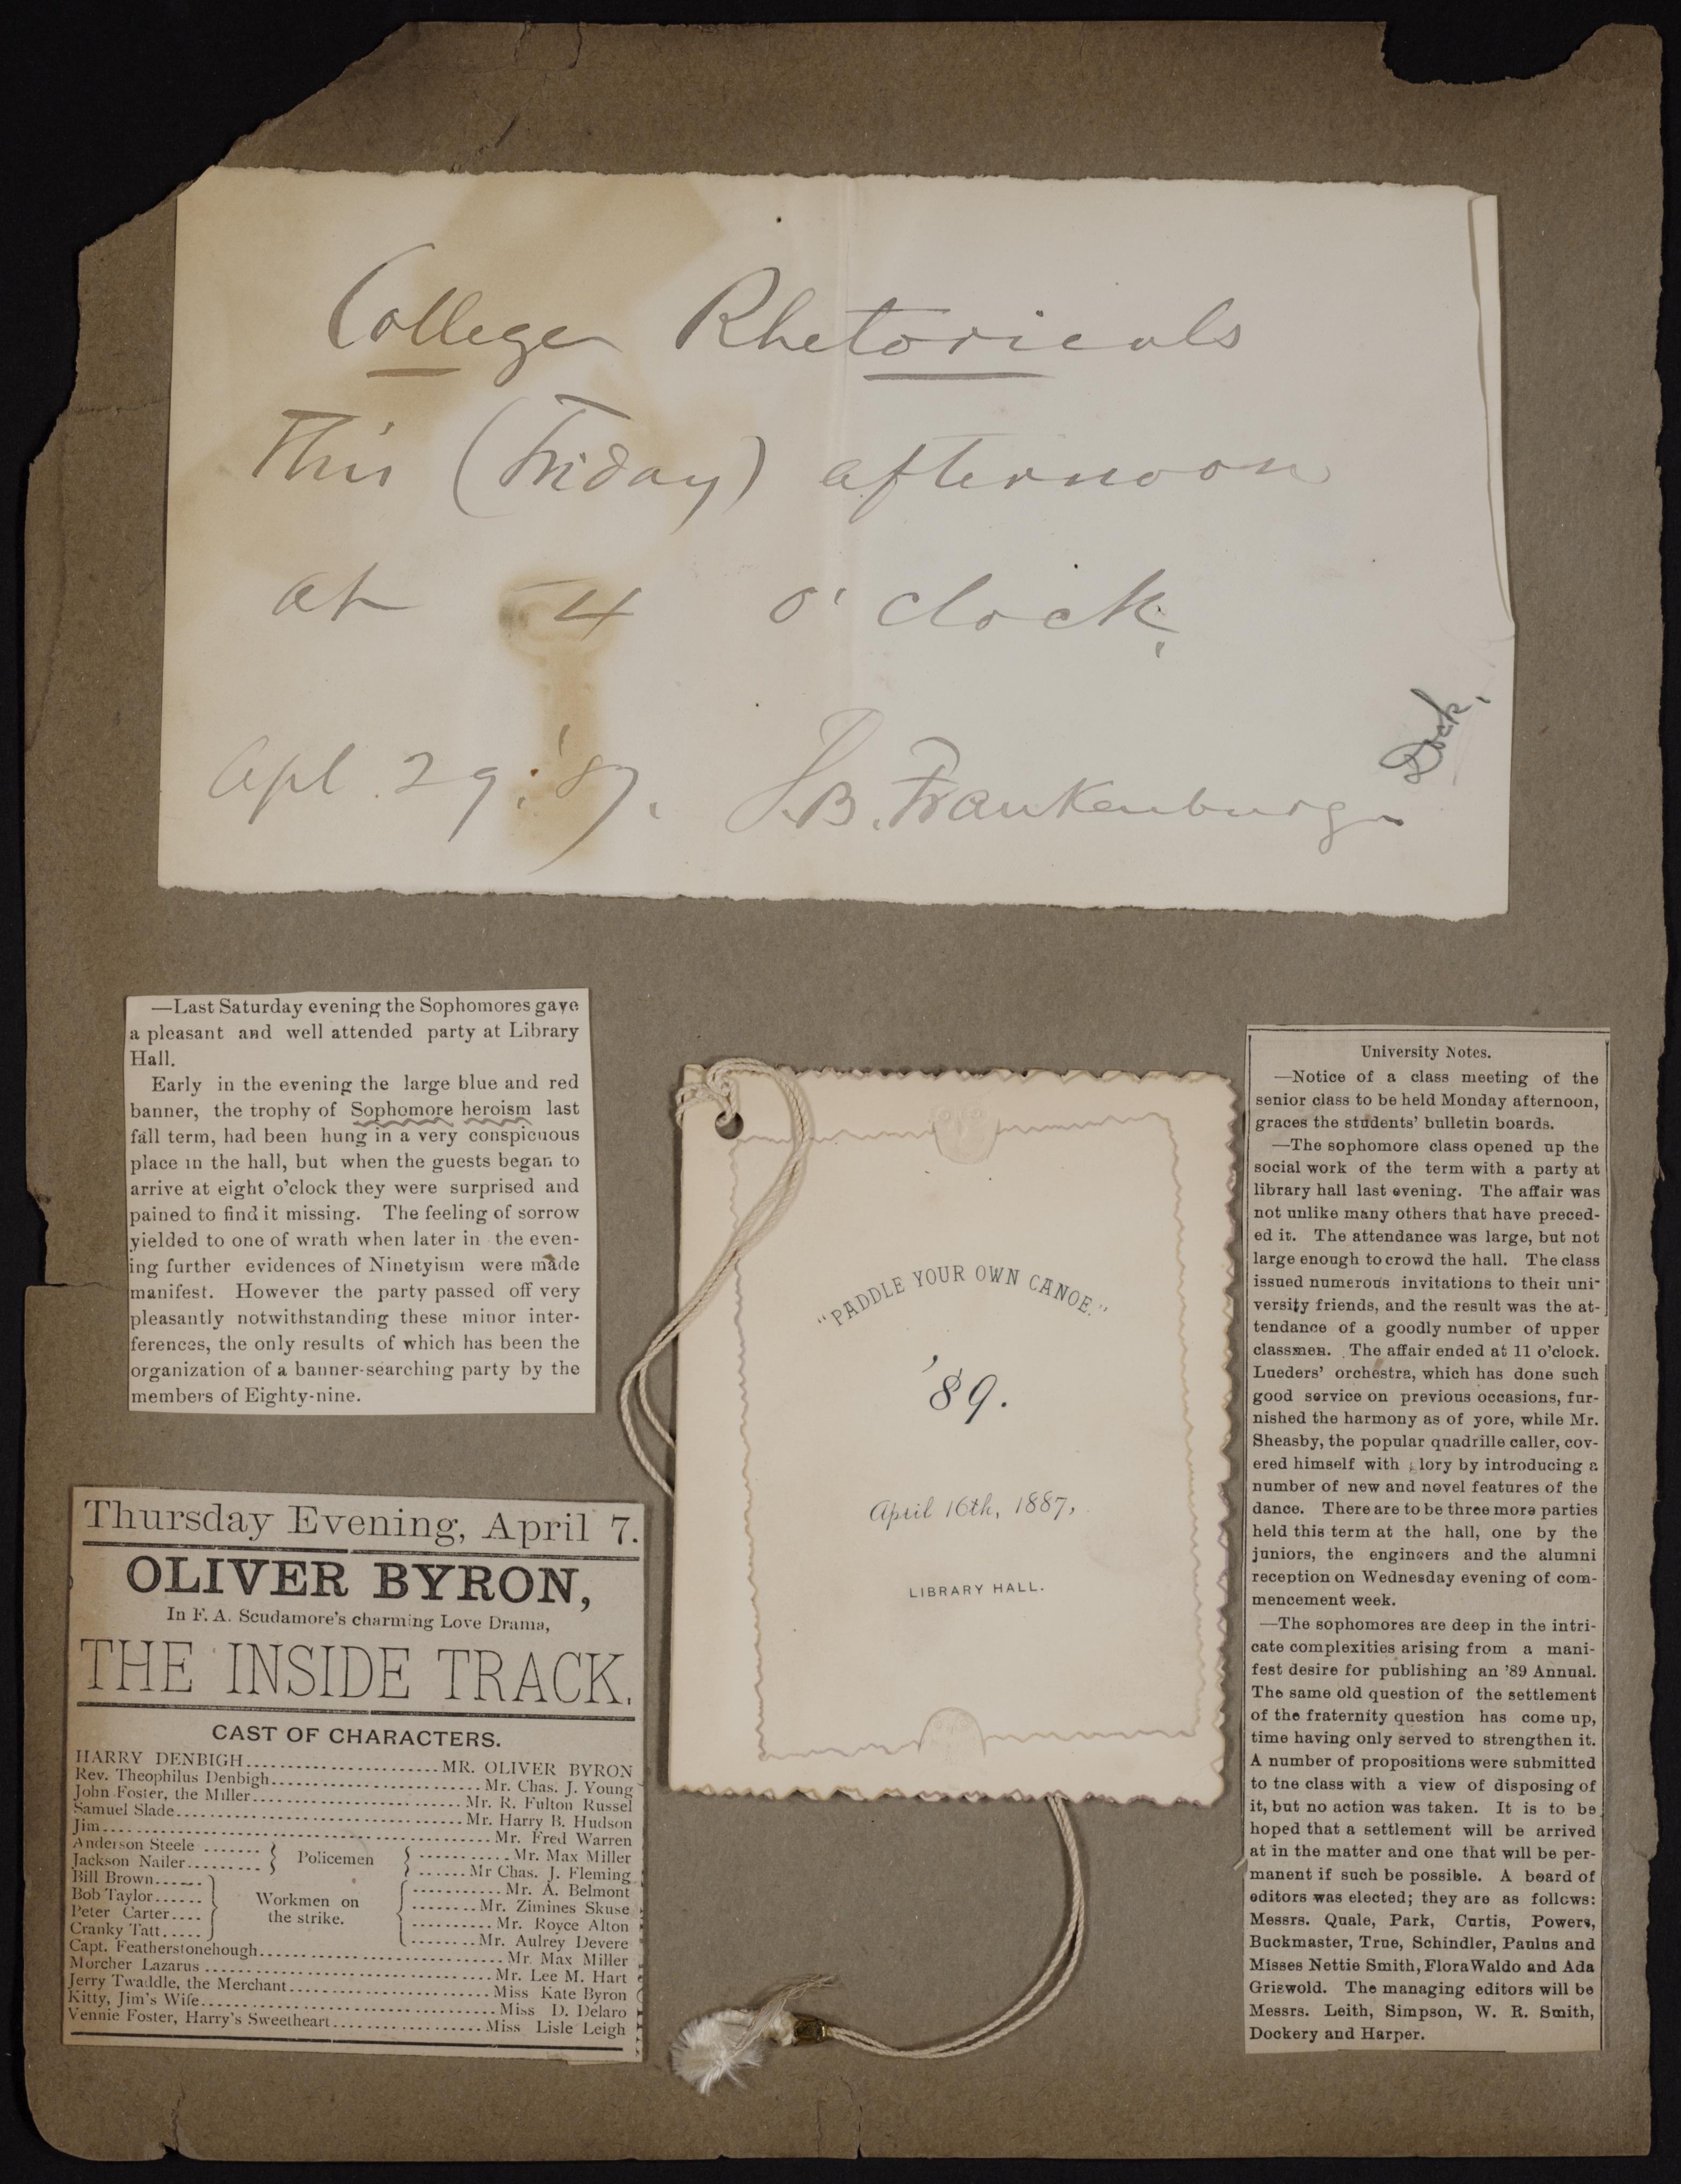 College Rhetoricals
This (Friday) afternoon
at 4 o'clock.
Apl. 29, '87. J.B. Frankenburger
Dock,
—Last Saturday evening the Sophomores gave
a pleasant and well attended party at Library
Hall.
Early in the evening the large blue and red
banner, the trophy of Sophomore heroism last
fall term, had been hung in a very conspicuous
place in the hall, but when the guests began to
arrive at eight o'clock they were surprised and
pained to find it missing. The feeling of sorrow
yielded to one of wrath when later in the even-
ing further evidences of Ninetyism were made
manifest. However the party passed off very
pleasantly notwithstanding these minor inter-
ferences, the only results of which has been the
organization of a banner-searching party by the
members of Eighty-nine.
Thursday Evening, April 7.
OLIVER BYRON,
In F. A. Scudamore's charming Love Drama,
THE INSIDE TRACK.
CAST OF CHARACTERS.
HARRY DENBIGH MR. OLIVER BYRON
Rev. Theophilus Denbigh Mr. Chas. J. Young
John Foster, the Miller Mr. R. Fulton Russel
Samuel Slade Mr. Harry B. Hudson
Jim Mr. Fred Warren
Anderson Steele Mr. Max Miller
Jackson Nailer Policemen Mr Chas. J. Fleming
Bill Brown Mr. A. Belmont
Bob Taylor Workmen on Mr. Zimines Skuse
Peter Carter the strike. Mr. Royce Alton
Cranky Tatt Mr. Aulrey Devere
Capt. Featherstonehough Mr. Max Miller
Morcher Lazarus Mr. Lee M. Hart
Jerry Twaddle, the Merchant Miss Kate Byron
Kitty, Jim's Wife Miss D. Delaro
Vennie Foster, Harry's Sweetheart Miss Lisle Leigh
"PADDLE YOUR OWN CANOE."
'89.
April 16th, 1887,
LIBRARY HALL.
University Notes.
—Notice of a class meeting of the
senior class to be held Monday afternoon,
graces the students' bulletin boards.
—The sophomore class opened up the
social work of the term with a party at
library hall last evening. The affair was
not unlike many others that have preced-
ed it. The attendance was large, but not
large enough to crowd the hall. The class
issued numerous invitations to their uni-
versity friends, and the result was the at-
tendance of a goodly number of upper
classmen. The affair ended at 11 o'clock.
Lueders' orchestra, which has done such
good service on previous occasions, fur-
nished the harmony as of yore, while Mr.
Sheasby, the popular quadrille caller, cov-
ered himself with lory by introducing a
number of new and novel features of the
dance. There are to be three more parties
held this term at the hall, one by the
juniors, the engineers and the alumni
reception on Wednesday evening of com-
mencement week.
—The sophomores are deep in the intri-
cate complexities arising from a mani-
fest desire for publishing an '89 Annual.
The same old question of the settlement
of the fraternity question has come up,
time having only served to strengthen it.
A number of propositions were submitted
to the class with a view of disposing of
it, but no action was taken. It is to be
hoped that a settlement will be arrived
at in the matter and one that will be per-
manent if such be possible. A board of
editors was elected; they are as follows:
Messrs. Quale, Park, Curtis, Powers,
Buckmaster, True, Schindler, Paulus and
Misses Nettie Smith, Flora Waldo and Ada
Griswold. The managing editors will be
Messrs. Leith, Simpson, W. R. Smith,
Dockery and Harper.